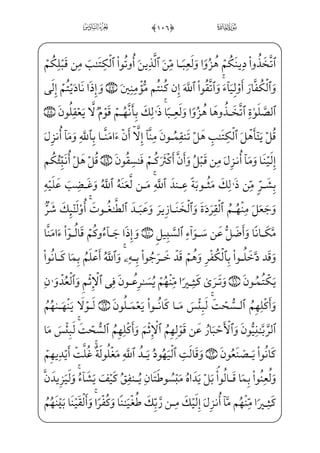 الجزء السادس ﴿١٠٦﴾ سورة المائدة
ٱتَّخَذُوا۟ دِينَكُمْ هُزُوًا وَلَعِبًا مِّنَ ٱلَّذِينَ أُوتُوا۟ ٱلْكِتَـٰبَ مِن قَبْلِكُمْ
وَٱلْكُفَّارَ أَوْلِيَآءَ ۚ وَٱتَّقُوا۟ ٱللَّهَ إِن كُنتُم مُّؤْمِنِينَ ٥٧ وَإِذَا نَادَيْتُمْ إِلَى
ٱلصَّلَوٰةِ ٱتَّخَذُوهَا هُزُوًا وَلَعِبًا ۚ ذَٰلِكَ بِأَنَّهُمْ قَوْمٌ لَّا يَعْقِلُونَ ٥٨
قُلْ يَـٰٓأَهْلَ ٱلْكِتَـٰبِ هَلْ تَنقِمُونَ مِنَّآ إِلَّآ أَنْ ءَامَنَّا بِٱللَّهِ وَمَآ أُنزِلَ
إِلَيْنَا وَمَآ أُنزِلَ مِن قَبْلُ وَأَنَّ أَكْثَرَكُمْ فَـٰسِقُونَ ٥٩ قُلْ هَلْ أُنَبِّئُكُم
بِشَرٍّ مِّن ذَٰلِكَ مَثُوبَةً عِندَ ٱللَّهِ ۚ مَن لَّعَنَهُ ٱللَّهُ وَغَضِبَ عَلَيْهِ
وَجَعَلَ مِنْهُمُ ٱلْقِرَدَةَ وَٱلْخَنَازِيرَ وَعَبَدَ ٱلطَّـٰغُوتَ ۚ أُو۟لَـٰٓئِكَ شَرٌّ
مَّكَانًا وَأَضَلُّ عَن سَوَآءِ ٱلسَّبِيلِ ٦٠ وَإِذَا جَآءُوكُمْ قَالُوٓا۟ ءَامَنَّا
وَقَد دَّخَلُوا۟ بِٱلْكُفْرِ وَهُمْ قَدْ خَرَجُوا۟ بِهِۦ ۚ وَٱللَّهُ أَعْلَمُ بِمَا كَانُوا۟
يَكْتُمُونَ ٦١ وَتَرَىٰ كَثِيرًا مِّنْهُمْ يُسَـٰرِعُونَ فِى ٱلْإِثْمِ وَٱلْعُدْوَٰنِ
وَأَكْلِهِمُ ٱلسُّحْتَ ۚ لَبِئْسَ مَا كَانُوا۟ يَعْمَلُونَ ٦٢ لَوْلَا يَنْهَىٰهُمُ
ٱلرَّبَّـٰنِيُّونَ وَٱلْأَحْبَارُ عَن قَوْلِهِمُ ٱلْإِثْمَ وَأَكْلِهِمُ ٱلسُّحْتَ ۚ لَبِئْسَ مَا
كَانُوا۟ يَصْنَعُونَ ٦٣ وَقَالَتِ ٱلْيَهُودُ يَدُ ٱللَّهِ مَغْلُولَةٌ ۚ غُلَّتْ أَيْدِيهِمْ
وَلُعِنُوا۟ بِمَا قَالُوا۟ ۘ بَلْ يَدَاهُ مَبْسُوطَتَانِ يُنفِقُ كَيْفَ يَشَآءُ ۚ وَلَيَزِيدَنَّ
كَثِيرًا مِّنْهُم مَّآ أُنزِلَ إِلَيْكَ مِن رَّبِّكَ طُغْيَـٰنًا وَكُفْرًا ۚ وَأَلْقَيْنَا بَيْنَهُمُ